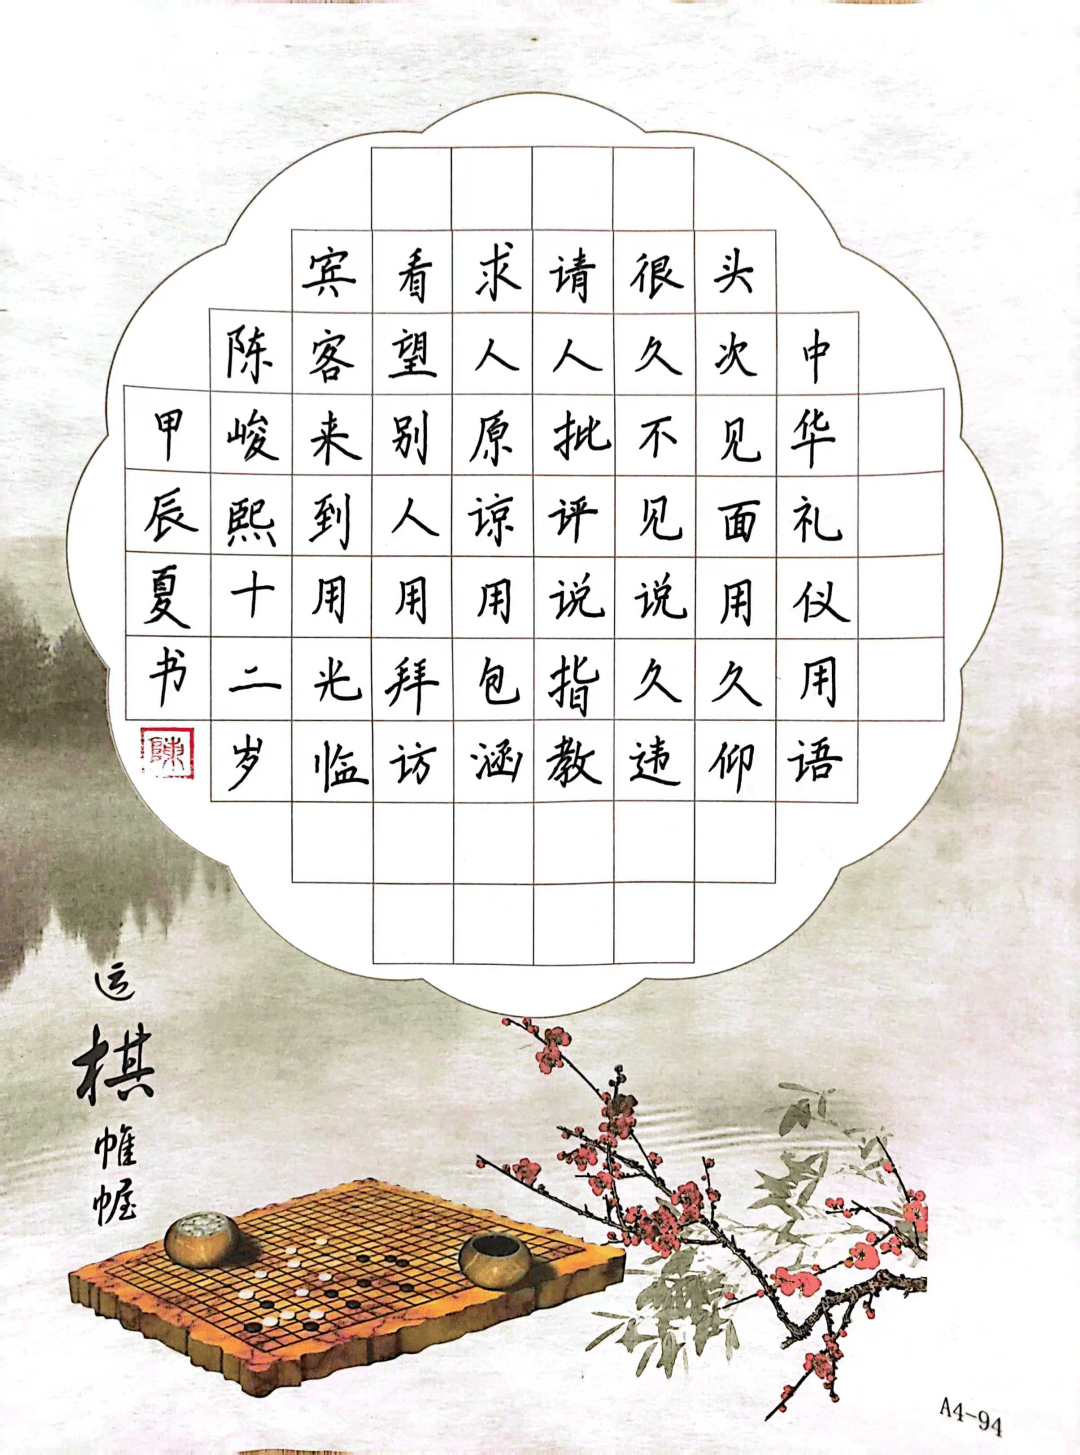 中华礼仪用语
头次见面用久仰
很久不见说久违
请人批评说指教
求人原谅用包涵
看望别人用拜访
宾客来到用光临
陈峻熙十二岁
甲辰夏书
陳
运棋帷幄
A4-94